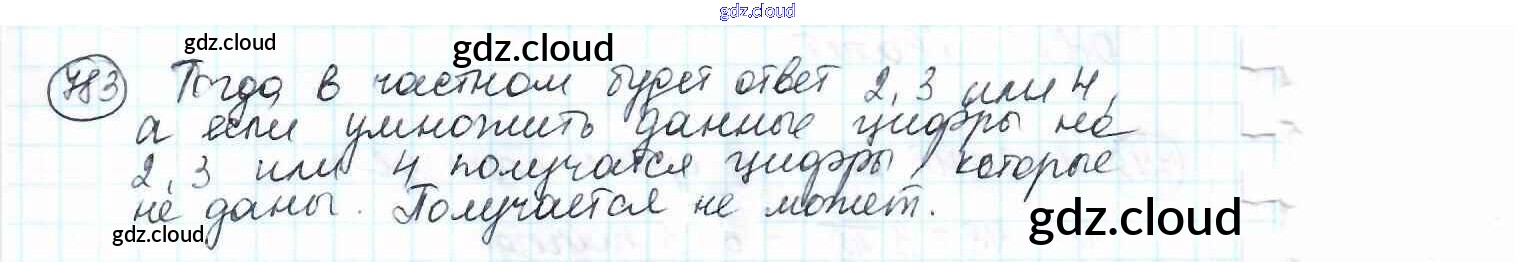 gdz.cloud
gdz.cloud
gdz.cloud
gdz.cloud
783 Тогда в частном будет ответ 2, 3 или 4,
а если умножить данные цифры на
2, 3 или 4 получатся цифры, которые
не даны. Получается не может.
gdz.cloud
gdz.cloud